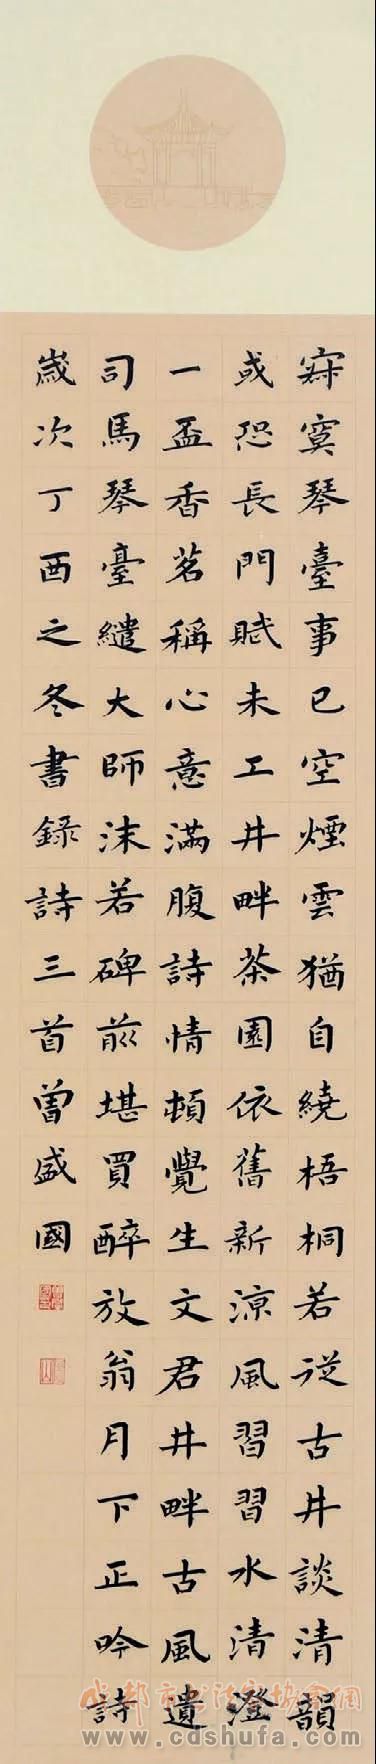 寂寞琴臺事已空煙雲猶自繞梧桐若從古井談清韻
或恐長門賦未工井畔茶園依舊新涼風習習水清澄
一盃香茗稱心意滿腹詩情頓覺生文君井畔古風遺
司馬琴臺繾大師沫若碑前堪買醉放翁月下正吟詩
歲次丁酉之冬書錄詩三首曾盛國
成都市书法家协会网
www.cdshufa.com